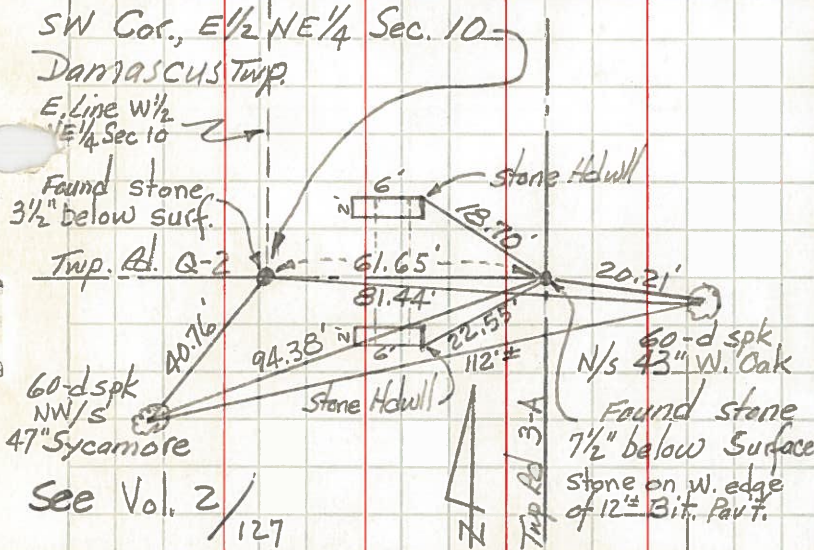 SW Cor., E½ NE¼ Sec. 10
Damascus Twp.
E. Line W½
NE¼ Sec 10
Found stone
3½" below surf.
Twp. Rd. Q-2
6'
2'
stone Hdwll
18.70'
61.65'
81.44'
20.21'
40.76'
94.38'
22.55'
2'
6'
112'±
Stone Hdwll
60-d spk
NW/s
47" Sycamore
60-d spk
N/s 43" W. Oak
Found stone
7½" below Surface
Stone on W. edge
of 12'± Bit. Pav't.
Twp Rd 3-A
N
See Vol. 2/127